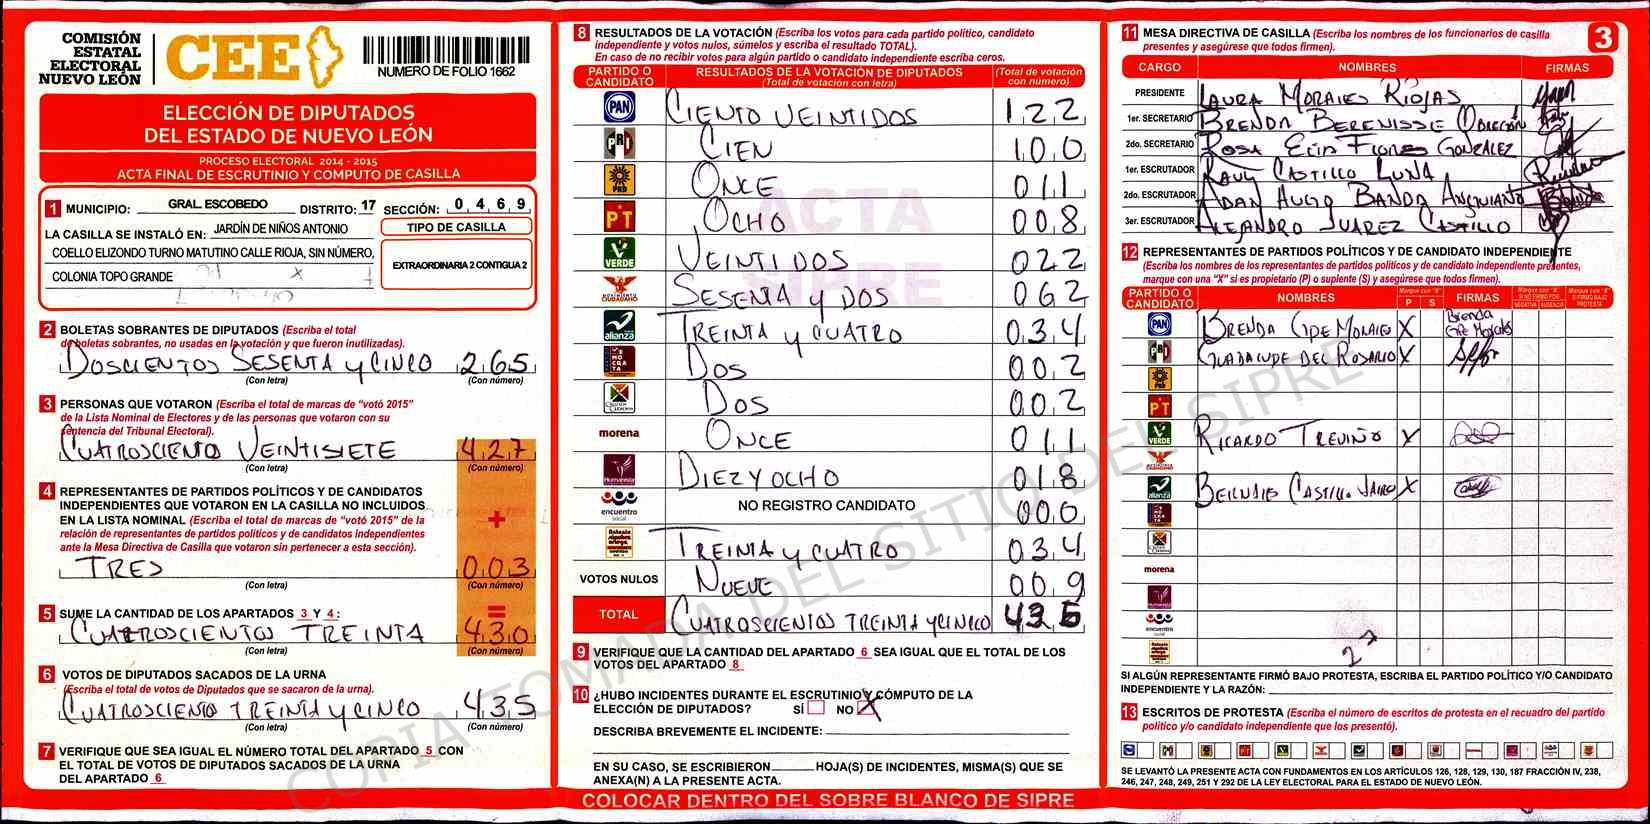 COMISIÓN
ESTATAL
ELECTORAL
NUEVO LEÓN
CEE
NUMERO DE FOLIO 1662
ELECCIÓN DE DIPUTADOS
DEL ESTADO DE NUEVO LEÓN
PROCESO ELECTORAL 2014 - 2015
ACTA FINAL DE ESCRUTINIO Y CÓMPUTO DE CASILLA
1 MUNICIPIO: GRAL. ESCOBEDO DISTRITO: 17 SECCIÓN: 0 4 6 9
LA CASILLA SE INSTALÓ EN: JARDÍN DE NIÑOS ANTONIO
COELLO ELIZONDO TURNO MATUTINO CALLE RIOJA, SIN NÚMERO,
COLONIA TOPO GRANDE
TIPO DE CASILLA
EXTRAORDINARIA 2 CONTIGUA 2
2 BOLETAS SOBRANTES DE DIPUTADOS (Escriba el total
de boletas sobrantes, no usadas en la votación y que fueron inutilizadas).
DOSCIENTOS SESENTA Y CINCO 2 6 5
(Con letra) (Con número)
3 PERSONAS QUE VOTARON (Escriba el total de marcas de “votó 2015”
de la Lista Nominal de Electores y de las personas que votaron con su
sentencia del Tribunal Electoral).
CUATROSCIENTO VEINTISIETE 4 2 7
(Con letra) (Con número)
4 REPRESENTANTES DE PARTIDOS POLÍTICOS Y DE CANDIDATOS
INDEPENDIENTES QUE VOTARON EN LA CASILLA NO INCLUIDOS
EN LA LISTA NOMINAL (Escriba el total de marcas de “votó 2015” de la
relación de representantes de partidos políticos y de candidatos independientes
ante la Mesa Directiva de Casilla que votaron sin pertenecer a esta sección).
+
TRES 0 0 3
(Con letra) (Con número)
=
5 SUME LA CANTIDAD DE LOS APARTADOS 3 Y 4:
CUATROSCIENTOS TREINTA 4 3 0
(Con letra) (Con número)
6 VOTOS DE DIPUTADOS SACADOS DE LA URNA
(Escriba el total de votos de Diputados que se sacaron de la urna).
CUATROSCIENTO TREINTA Y CINCO 4 3 5
(Con letra) (Con número)
7 VERIFIQUE QUE SEA IGUAL EL NÚMERO TOTAL DEL APARTADO 5 CON
EL TOTAL DE VOTOS DE DIPUTADOS SACADOS DE LA URNA
DEL APARTADO 6
8 RESULTADOS DE LA VOTACIÓN (Escriba los votos para cada partido político, candidato
independiente y votos nulos, súmelos y escriba el resultado TOTAL).
En caso de no recibir votos para algún partido o candidato independiente escriba ceros.
PARTIDO O CANDIDATO
RESULTADOS DE LA VOTACIÓN DE DIPUTADOS
(Total de votación con letra)
(Total de votación con número)
PAN CIENTO VEINTIDOS 1 2 2
PRI CIEN 1 0 0
PRD ONCE 0 1 1
PT OCHO 0 0 8
VERDE VEINTIDOS 0 2 2
MOVIMIENTO CIUDADANO SESENTA Y DOS 0 6 2
alianza TREINTA Y CUATRO 0 3 4
DEMOCRATA DOS 0 0 2
CRUZADA CIUDADANA DOS 0 0 2
morena ONCE 0 1 1
Humanista DIEZ Y OCHO 0 1 8
encuentro social NO REGISTRO CANDIDATO 0 0 0
TREINTA Y CUATRO 0 3 4
VOTOS NULOS NUEVE 0 0 9
TOTAL CUATROSCIENTOS TREINTA Y CINCO 4 3 5
ACTA
SIPRE
9 VERIFIQUE QUE LA CANTIDAD DEL APARTADO 6 SEA IGUAL QUE EL TOTAL DE LOS
VOTOS DEL APARTADO 8
10 ¿HUBO INCIDENTES DURANTE EL ESCRUTINIO Y CÓMPUTO DE LA
ELECCIÓN DE DIPUTADOS? SÍ NO X
DESCRIBA BREVEMENTE EL INCIDENTE:
EN SU CASO, SE ESCRIBIERON HOJA(S) DE INCIDENTES, MISMA(S) QUE SE
ANEXA(N) A LA PRESENTE ACTA.
COLOCAR DENTRO DEL SOBRE BLANCO DE SIPRE
COPIA TOMADA DEL SITIO DEL SIPRE
11 MESA DIRECTIVA DE CASILLA (Escriba los nombres de los funcionarios de casilla
presentes y asegúrese que todos firmen).
3
CARGO NOMBRES FIRMAS
PRESIDENTE LAURA MORALES RIOJAS
1er. SECRETARIO BRENDA BERENISSIE OBREGÓN
2do. SECRETARIO ROSA ELIA FLORES GONZALEZ
1er. ESCRUTADOR RAUL CASTILLO LUNA
2do. ESCRUTADOR ADAN HUGO BANDA ANGUIANO
3er. ESCRUTADOR ALEJANDRO JUAREZ CASTILLO
12 REPRESENTANTES DE PARTIDOS POLÍTICOS Y DE CANDIDATO INDEPENDIENTE
(Escriba los nombres de los representantes de partidos políticos y de candidato independiente presentes,
marque con una “X” si es propietario (P) o suplente (S) y asegúrese que todos firmen).
PARTIDO O CANDIDATO NOMBRES P S FIRMAS
Marque con “X” SI NO FIRMÓ POR: NEGATIVA AUSENCIA
Marque con “X” SI FIRMÓ BAJO PROTESTA
PAN BRENDA GPE MORALES X Brenda Gpe Morales
PRI GUADALUPE DEL ROSARIO X
PRD
PT
VERDE RICARDO TREVIÑO X
alianza CASTILLO X
morena
encuentro social
SI ALGÚN REPRESENTANTE FIRMÓ BAJO PROTESTA, ESCRIBA EL PARTIDO POLÍTICO Y/O CANDIDATO
INDEPENDIENTE Y LA RAZÓN:
13 ESCRITOS DE PROTESTA (Escriba el número de escritos de protesta en el recuadro del partido
político y/o candidato independiente que los presentó).
SE LEVANTÓ LA PRESENTE ACTA CON FUNDAMENTOS EN LOS ARTÍCULOS 126, 128, 129, 130, 187 FRACCIÓN IV, 238,
246, 247, 248, 249, 251 Y 292 DE LA LEY ELECTORAL PARA EL ESTADO DE NUEVO LEÓN.